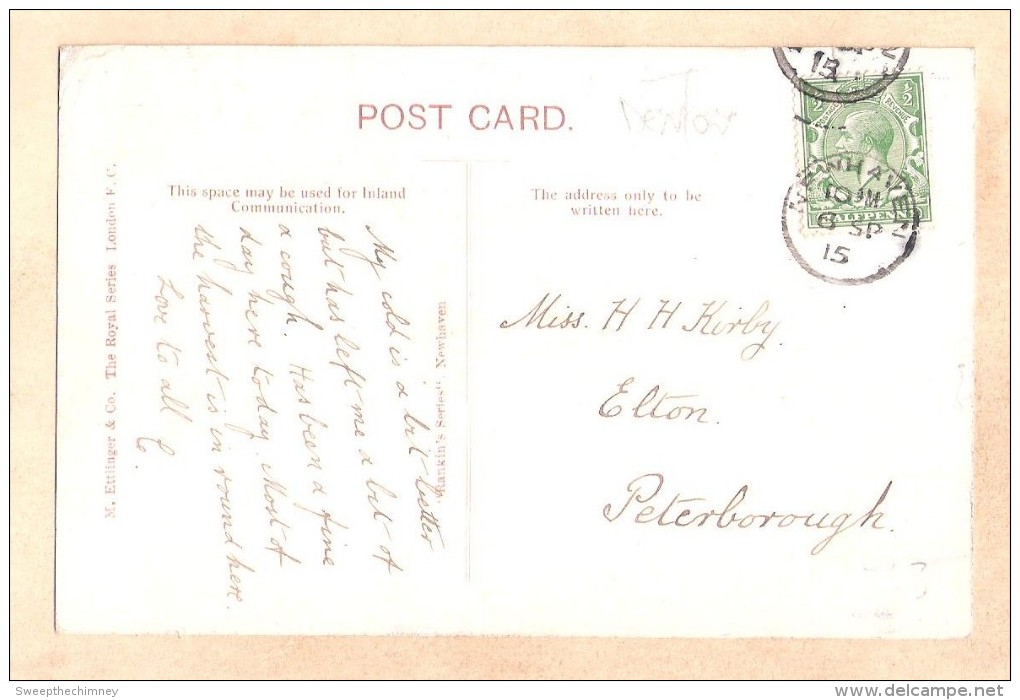 POST CARD.
This space may be used for Inland
Communication.
The address only to be
written here.
M. Ettlinger & Co. The Royal Series London E.C.
"Rankin's Series", Newhaven
My cold is a bit better
but has left me a bit of
a cough. Has been a fine
day here today. Most of
the harvest is in round here.
Love to all
C.
Miss. H H Kirby.
Elton.
Peterborough.
½ ½
REVENUE
HALFPENNY
NEWHAVEN
8 SP
15
15
Sweepthechimney
www.delcampe.net